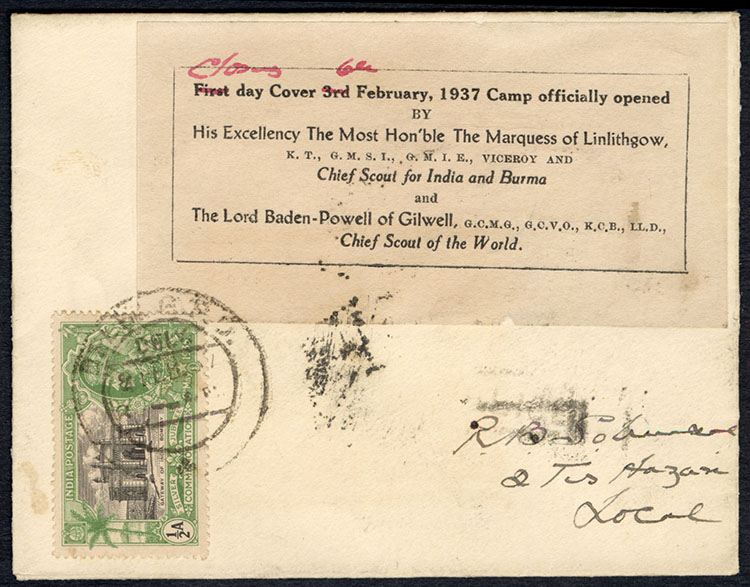 Closing 6th
First day Cover 3rd February, 1937 Camp officially opened
BY
His Excellency The Most Hon'ble The Marquess of Linlithgow,
K. T., G. M. S. I., G. M. I. E., VICEROY AND
Chief Scout for India and Burma
and
The Lord Baden-Powell of Gilwell, G.C.M.G., G.C.V.O., K.C.B., LL.D.,
Chief Scout of the World.
INDIA POSTAGE
GATEWAY OF INDIA BOMBAY
SILVER JUBILEE
COMMEMORATION
½A
R.B.
2 Tis Hazari
Local